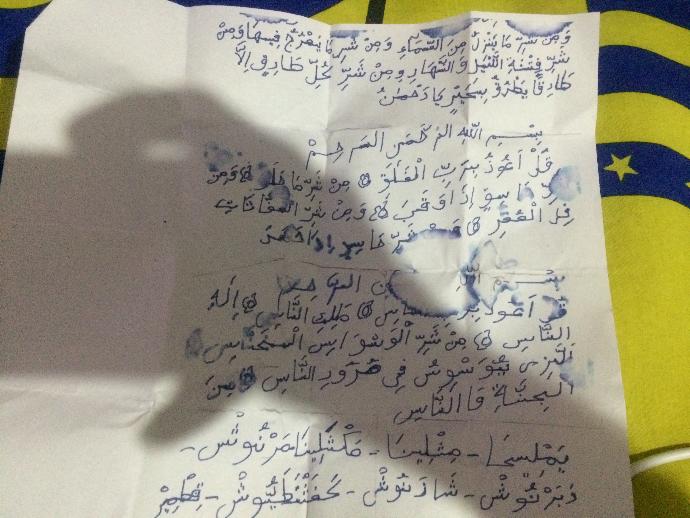 وَمِنْ شَرِّ مَا يَنْزِلُ مِنَ السَّمَاءِ وَمِنْ شَرِ مَا يَعْرُجُ فِيهَا وَمِنْ
شَرِّ فِتْنَةِ اللَّيْلِ وَالنَّهَارِ وَمِنْ شَرِّ كُلِّ طَارِقٍ إِلَّا
طَارِقًا يَطْرُقُ بِخَيْرٍ يَا رَحْمٰنُ
بِسْمِ اللّٰهِ الرَّحْمٰنِ الرَّحِيمْ
قُلْ أَعُوذُ بِرَبِّ الْفَلَقِ مِنْ شَرِّ مَا خَلَقَ وَمِنْ
إِذَا وَقَبَ وَمِنْ شَرِّ النَّفَّاثَاتِ
فِى الْعُقَدِ شَرِّ حَاسِدٍ إِذَا حَسَدَ
بِسْمِ الرَّحِيمِ
قُلْ أَعُوذُ النَّاسِ مَلِكِ النَّاسِ إِلَهِ
النَّاسِ مِنْ شَرِّ الْوَسْوَاسِ الْخَنَّاسِ
الَّذِى يُوَسْوِسُ فِى صُدُورِ النَّاسِ مِنَ
الْجِنَّةِ وَالنَّاسِ
يَمْلِيخَا - مَكْسَلْمِينَا مَرْنُوشْ -
دَبَرْنُوشْ - شَاذَنُوشْ - كَفَشْطَطَيُّوشْ - قِطْمِيرْ